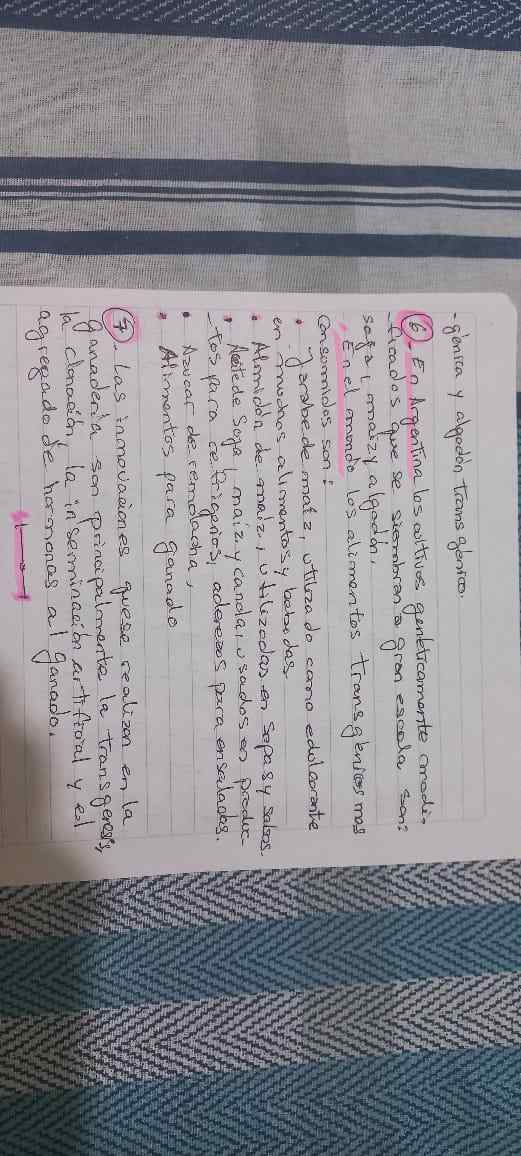 -génica y algodón transgénico.
6- En Argentina los cultivos genéticamente modi-
-ficados que se siembran a gran escala son:
soja, maíz y algodón.
• En el mundo los alimentos transgénicos mas
consumidos son:
• Jarabe de maíz, utilizado como edulcorante
en muchos alimentos y bebidas.
• Almidón de maiz, utilizadas en sopas y salsas.
• Aceite de soja, maíz y canola, usados en produc-
-tos para refrigerios, aderezos para ensaladas.
• Azucar de remolacha,
• Alimentos para ganado
7- Las innovaciones que se realizan en la
ganaderia son principalmente la transgenesis,
la clonación, la inserminación artificial y el
agregado de hormonas al ganado.